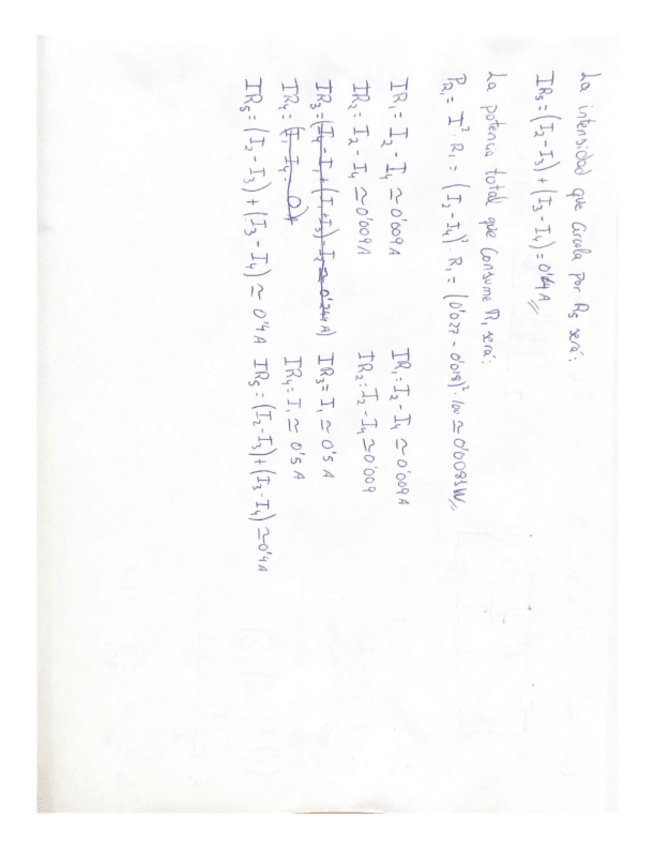 La intensidad que circula por R₅ será:
IR₅=(I₂-I₃)+(I₃-I₄)=0'4A
La potencia total que consume R₁ será:
P_R₁= I²·R₁ = (I₂-I₄)²·R₁ = (0'027 - 0'018)²·100 ≃ 0'0083W
IR₁= I₂ - I₄ ≃ 0'009A IR₁: I₂ - I₄ ≃ 0'009A
IR₂= I₂ - I₄ ≃ 0'009A IR₂: I₂ - I₄ ≃ 0'009
IR₃= IR₃= I₁ ≃ 0'5 A
IR₄= IR₄= I₁ ≃ 0'5 A
IR₅= (I₂-I₃)+(I₃-I₄) ≃ 0'4A IR₅= (I₂-I₃)+(I₃-I₄) ≃ 0'4A